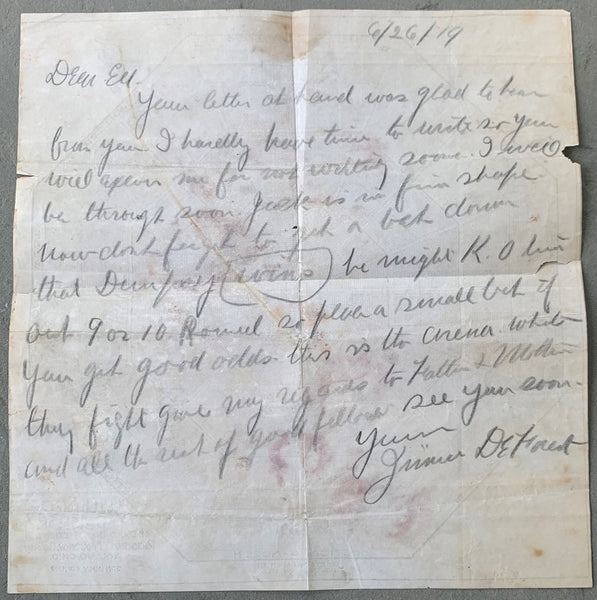 6/26/19
Dear Ed.
Your letter at hand was glad to hear
from you. I hardly have time to write so you
will excuse me for not writing sooner. I will
be through soon Jack is in fine shape.
now dont forget to put a bet down
that Dempsey wins he might K.O him
out 9 or 10 Round so place a small bet if
you get good odds. this is the arena where
they fight give my regards to Father & Mother
and all the rest of good fellows see you soon.
Yours
Jimmie DeForest